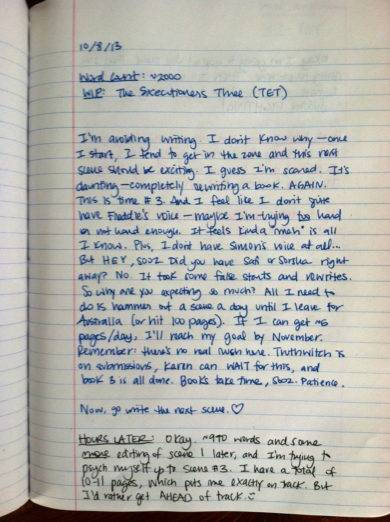 10/8/13
Word Count: ~2000
WIP: The Executioners Three (TET)
I'm avoiding writing. I don't know why—once
I start, I tend to get in the zone and this next
scene should be exciting. I guess I'm scared. It's
daunting—completely rewriting a book. AGAIN.
This is time #3. And I feel like I don't quite
have Freddie's voice—maybe I'm trying too hard
or not hard enough. It feels kinda "meh" is all
I know. Plus, I don't have Simon's voice at all...
But HEY, Sooz. Did you have Safi or Iseult right
away? No. It took some false starts and rewrites.
So why are you expecting so much? All I need to
do is hammer out a scene a day until I leave for
Australia (or hit 100 pages). If I can get ~5
pages/day, I'll reach my goal by November.
Remember: there's no real rush here. Truthwitch is
on submissions, Karen can WAIT for this, and
book 3 is all done. Books take time, Sooz. Patience.
Now, go write the next scene. ♡
HOURS LATER: Okay. ~970 words and some
more editing of scene 1 later, and I'm trying to
psych myself up to scene #3. I have a total of
10-11 pages, which puts me exactly on track. But
I'd rather get AHEAD of track. :)